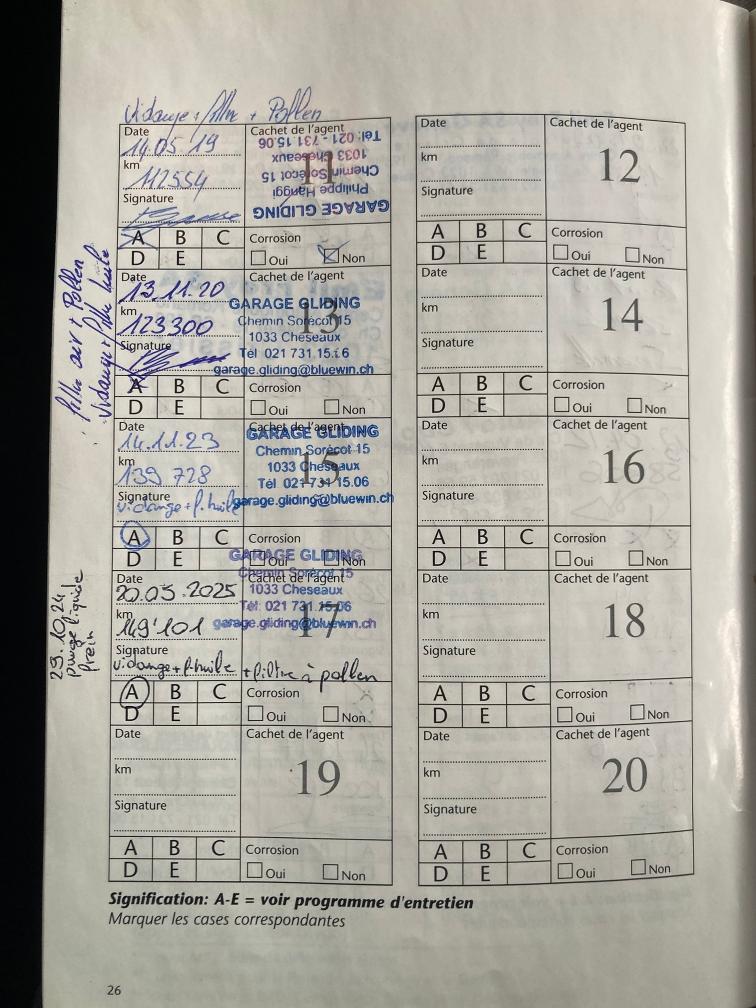 Vidange + filtre + Pollen
Date
14.05 19
km
112554
Signature
Cachet de l'agent
11
GARAGE GLIDING
Philippe Hänggi
Chemin Sorécot 15
1033 Cheseaux
Tél: 021 - 731 15.06
A B C
D E
Corrosion
Oui Non
Date
13.11.20
km
123300
Signature
Cachet de l'agent
13
GARAGE GLIDING
Chemin Sorécot 15
1033 Cheseaux
Tél 021 731 15.06
garage.gliding@bluewin.ch
A B C
D E
Corrosion
Oui Non
filtre air + Pollen
Vidange + filtre huile
Date
14.11.23
km
139 728
Signature
vidange + f. huile
Cachet de l'agent
15
GARAGE GLIDING
Chemin Sorécot 15
1033 Cheseaux
Tél 021 731 15.06
garage.gliding@bluewin.ch
A B C
D E
Corrosion
Oui Non
29.10.24
purge liquide
frein
Date
20.05.2025
km
149'101
Signature
vidange + f. huile + filtre à pollen
Cachet de l'agent
17
GARAGE GLIDING
Chemin Sorécot 15
1033 Cheseaux
Tél: 021 731 15 06
garage.gliding@bluewin.ch
A B C
D E
Corrosion
Oui Non
Date
km
Signature
Cachet de l'agent
19
A B C
D E
Corrosion
Oui Non
Date
km
Signature
Cachet de l'agent
12
A B C
D E
Corrosion
Oui Non
Date
km
Signature
Cachet de l'agent
14
A B C
D E
Corrosion
Oui Non
Date
km
Signature
Cachet de l'agent
16
A B C
D E
Corrosion
Oui Non
Date
km
Signature
Cachet de l'agent
18
A B C
D E
Corrosion
Oui Non
Date
km
Signature
Cachet de l'agent
20
A B C
D E
Corrosion
Oui Non
Signification: A-E = voir programme d'entretien
Marquer les cases correspondantes
26